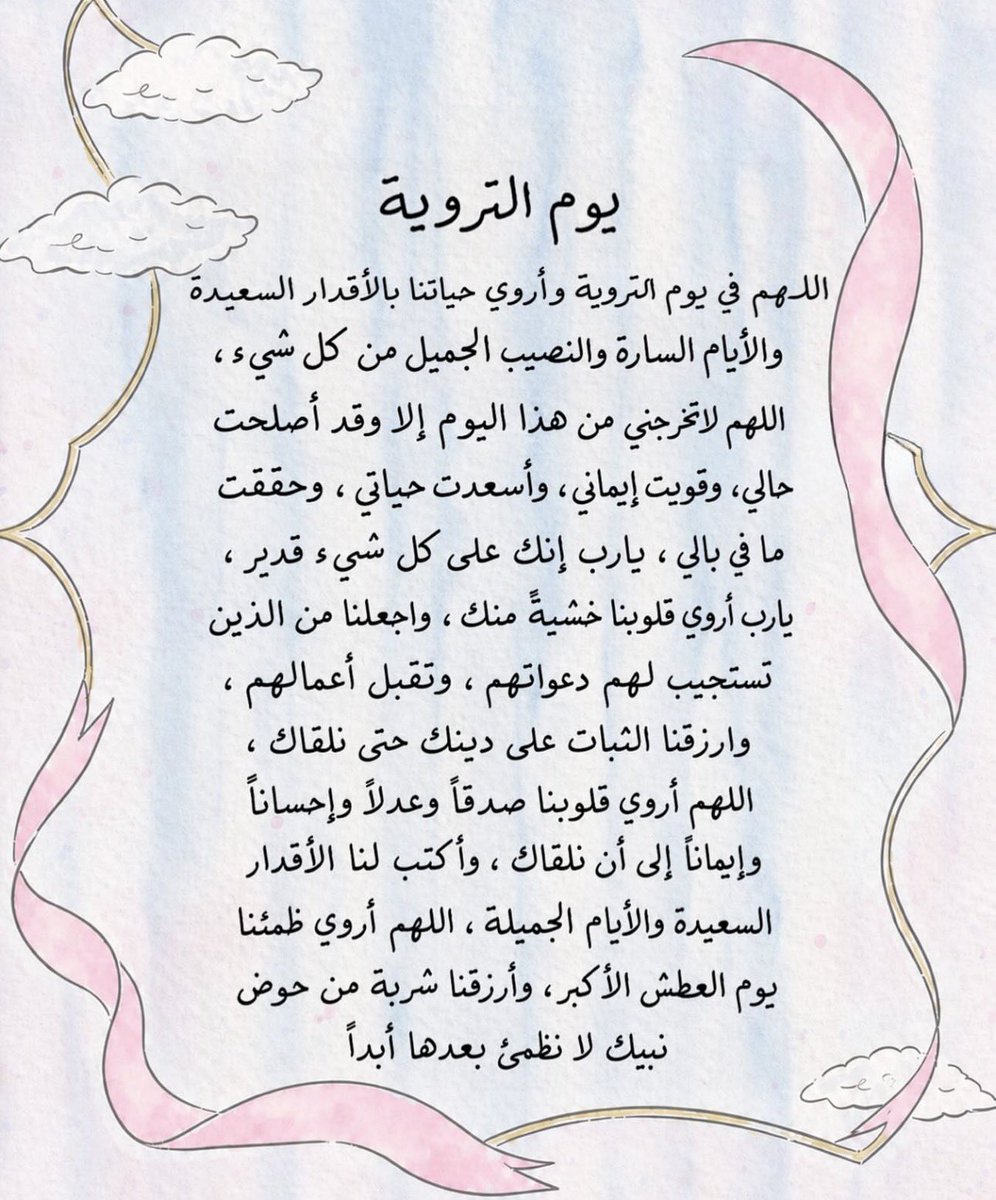 يوم التروية
اللهم في يوم التروية وأروي حياتنا بالأقدار السعيدة
والأيام السارة والنصيب الجميل من كل شيء ،
اللهم لاتخرجني من هذا اليوم إلا وقد أصلحت
حالي، وقويت إيماني، وأسعدت حياتي ، وحققت
ما في بالي ، يارب إنك على كل شيء قدير ،
يارب أروي قلوبنا خشيةً منك ، واجعلنا من الذين
تستجيب لهم دعواتهم ، وتقبل أعمالهم ،
وارزقنا الثبات على دينك حتى نلقاك ،
اللهم أروي قلوبنا صدقاً وعدلاً وإحساناً
وإيماناً إلى أن نلقاك ، وأكتب لنا الأقدار
السعيدة والأيام الجميلة ، اللهم أروي ظمئنا
يوم العطش الأكبر، وأرزقنا شربة من حوض
نبيك لا نظمئ بعدها أبداً